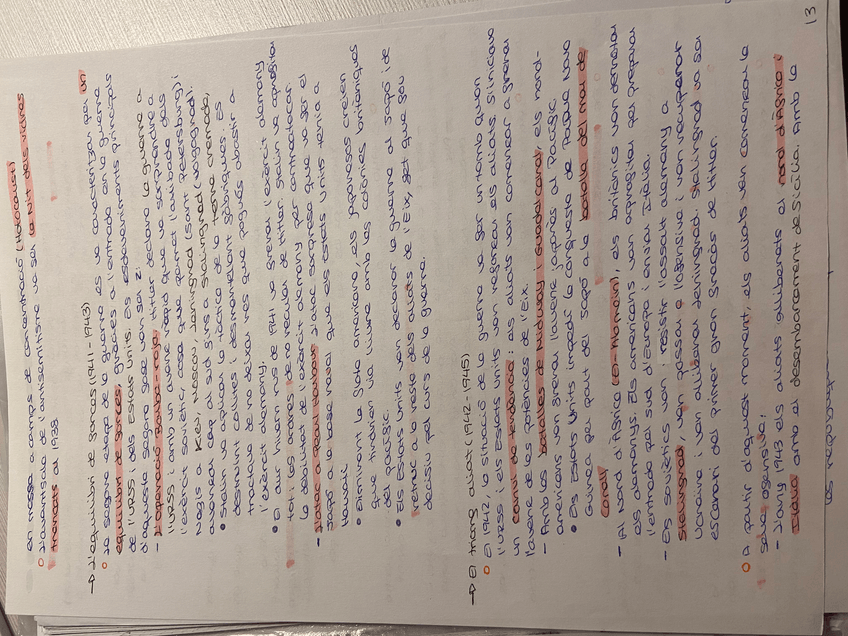 en massa a camps de concentració (Holocaust)
○ L'avantsala de l'antisemitisme va ser la Nit dels vidres
trencats al 1938
→ L'equilibri de forces (1941-1943)
○ La segona etapa de la guerra es va caracteritzar per un
equilibri de forces, gràcies a l'entrada en la guerra
de l'URSS i dels Estats Units. Els esdeveniments principals
d'aquesta segona fase van ser 2:
- L'operació Barba-roja: Hitler declara la guerra a
l'URSS i amb un avenç ràpid que va sorprendre a
l'exèrcit soviètic, cosa que permet l'arribada dels
nazis a Kiev, Moscou, Leningrad (Sant Petersburg) i
avançar cap al sud fins a Stalingrad (Volgograd).
• Stalin va aplicar la tàctica de la terra cremada,
destruint collites i desmantellant fàbriques. Es
tractava de no deixar res que pogués abastir a
l'exèrcit alemany.
• El dur hivern rus de 1941 va frenar l'exèrcit alemany
tot i les ordres de no recular de Hitler. Stalin va aprofitar
la debilitat de l'exèrcit alemany per contraatacar.
- L'atac a Pearl Harbour: L'atac sorpresa que va fer el
Japó a la base naval que els Estats Units tenia a
Hawaii.
• Eliminant la flota americana, els japonesos creien
que tindrien via lliure amb les colònies britàniques
del pacífic.
• Els Estats Units van declarar la guerra al Japó i de
retruc a la resta dels aliats de l'Eix, fet que fou
decisiu pel curs de la guerra.
→ El triomf aliat (1942-1945)
○ El 1942, la situació de la guerra va fer un tomb quan
l'URSS i els Estats Units van reforçar els aliats. S'iniciava
un canvi de tendència: els aliats van començar a frenar
l'avenç de les potències de l'Eix.
- Amb les batalles de Midway i Guadalcanal, els nord-
americans van frenar l'avenç japonès al Pacífic.
• Els Estats Units impedí la conquesta de Papua Nova
Guinea per part del Japó a la batalla del mar de
Corall.
- Al Nord d'Àfrica (El-Alamein), els britànics van derrotar
als alemanys. Els americans van aprofitar per preparar
l'entrada pel sud d'Europa i enviar Itàlia.
- Els soviètics van resistir l'assalt alemany a
Stalingrad, van passar a l'ofensiva i van recuperar
Ucraïna i van alliberar Leningrad. Stalingrad va ser
escenari del primer gran fracàs de Hitler.
○ A partir d'aquest moment, els aliats van començar la
seva ofensiva:
- L'any 1943 els aliats alliberats al nord d'Àfrica i
Itàlia amb el desembarcament de Sicília. Amb la
13